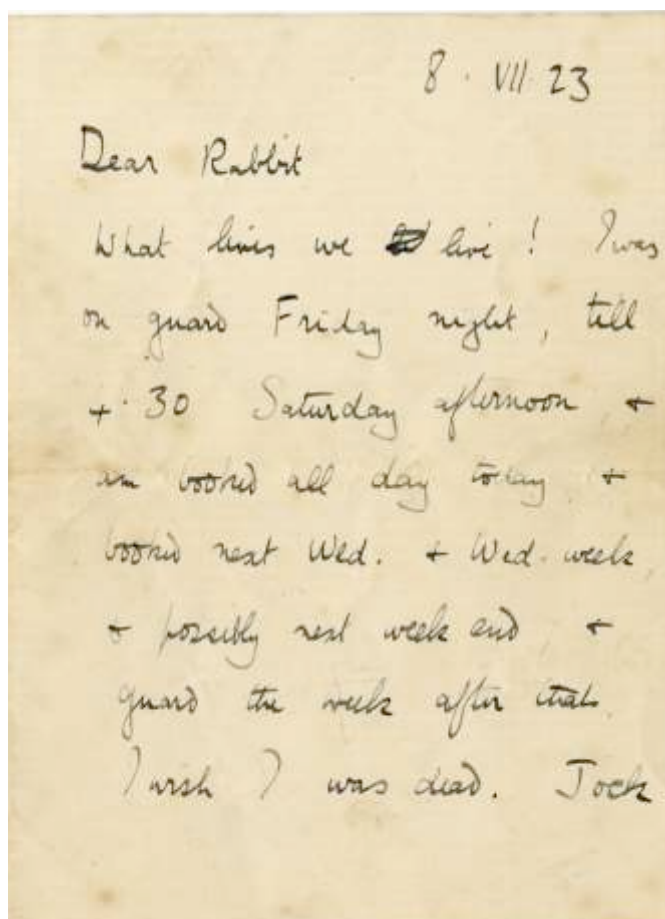 8 · VII · 23
Dear Rabbit
What lives we live ! I was
on guard Friday night, till
4·30 Saturday afternoon, &
am booked all day today, &
booked next Wed. & Wed. week,
& possibly next week end, &
guard the week after that.
I wish I was dead. Jock